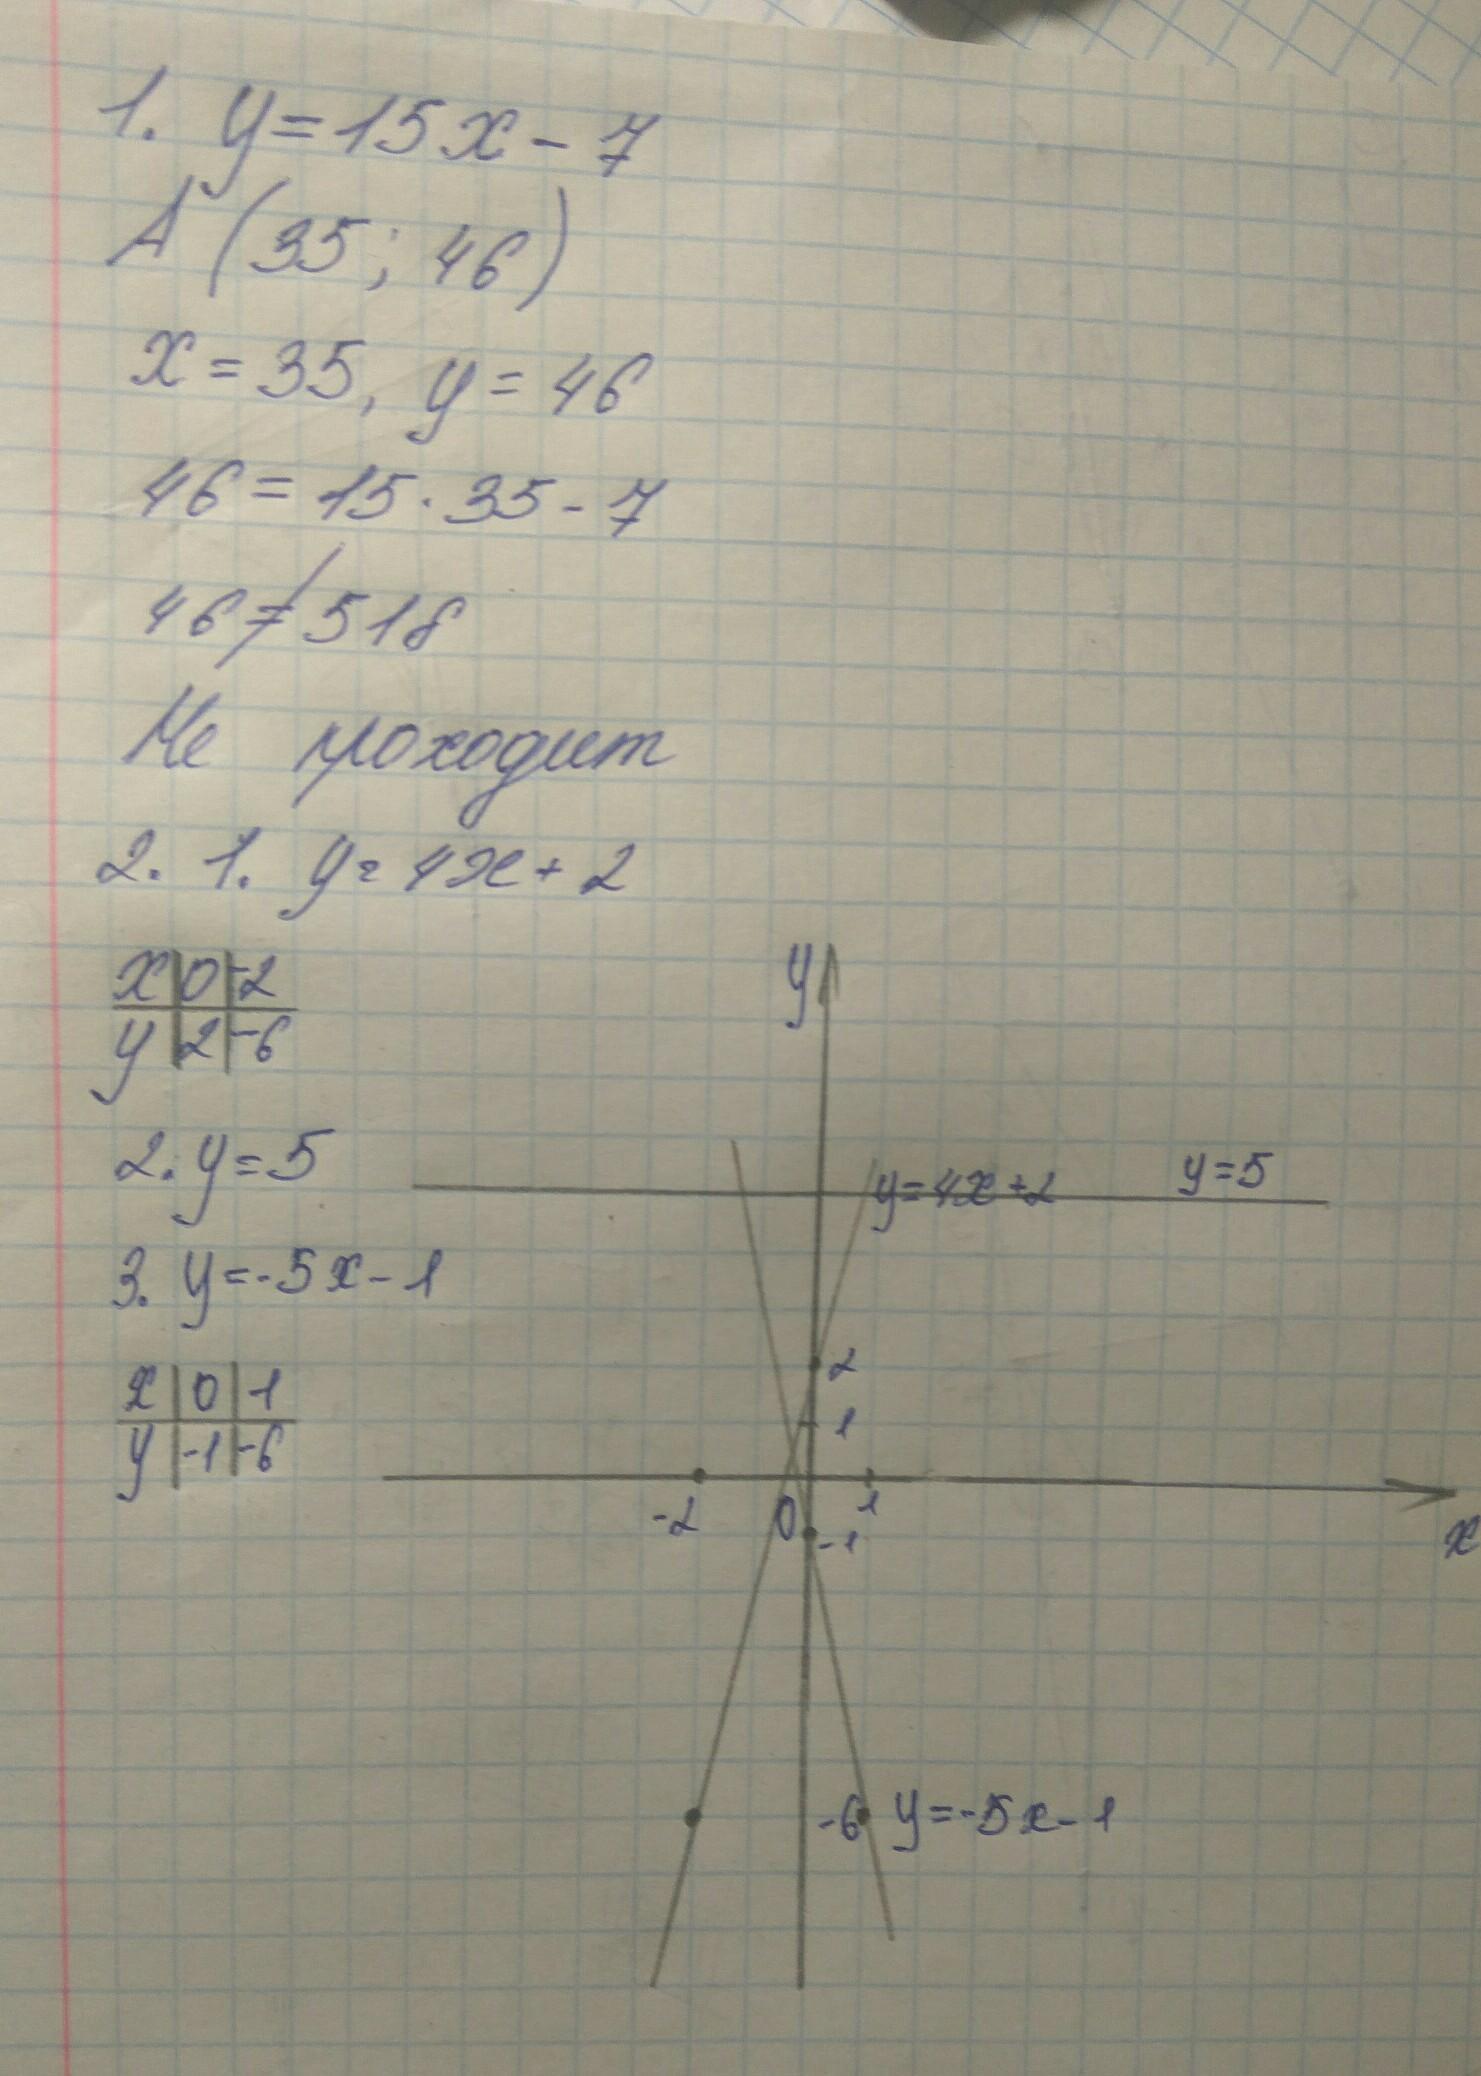 1. y=15x-7
A (35; 46)
x=35, y=46
46=15·35-7
46≠518
Не проходит
2. 1. y=4x+2
x|0|-2
y|2|-6
2. y=5
3. y=-5x-1
x|0|1
y|-1|-6
y
y=4x+2
y=5
2
1
-2
0
1
-1
x
-6
y=-5x-1